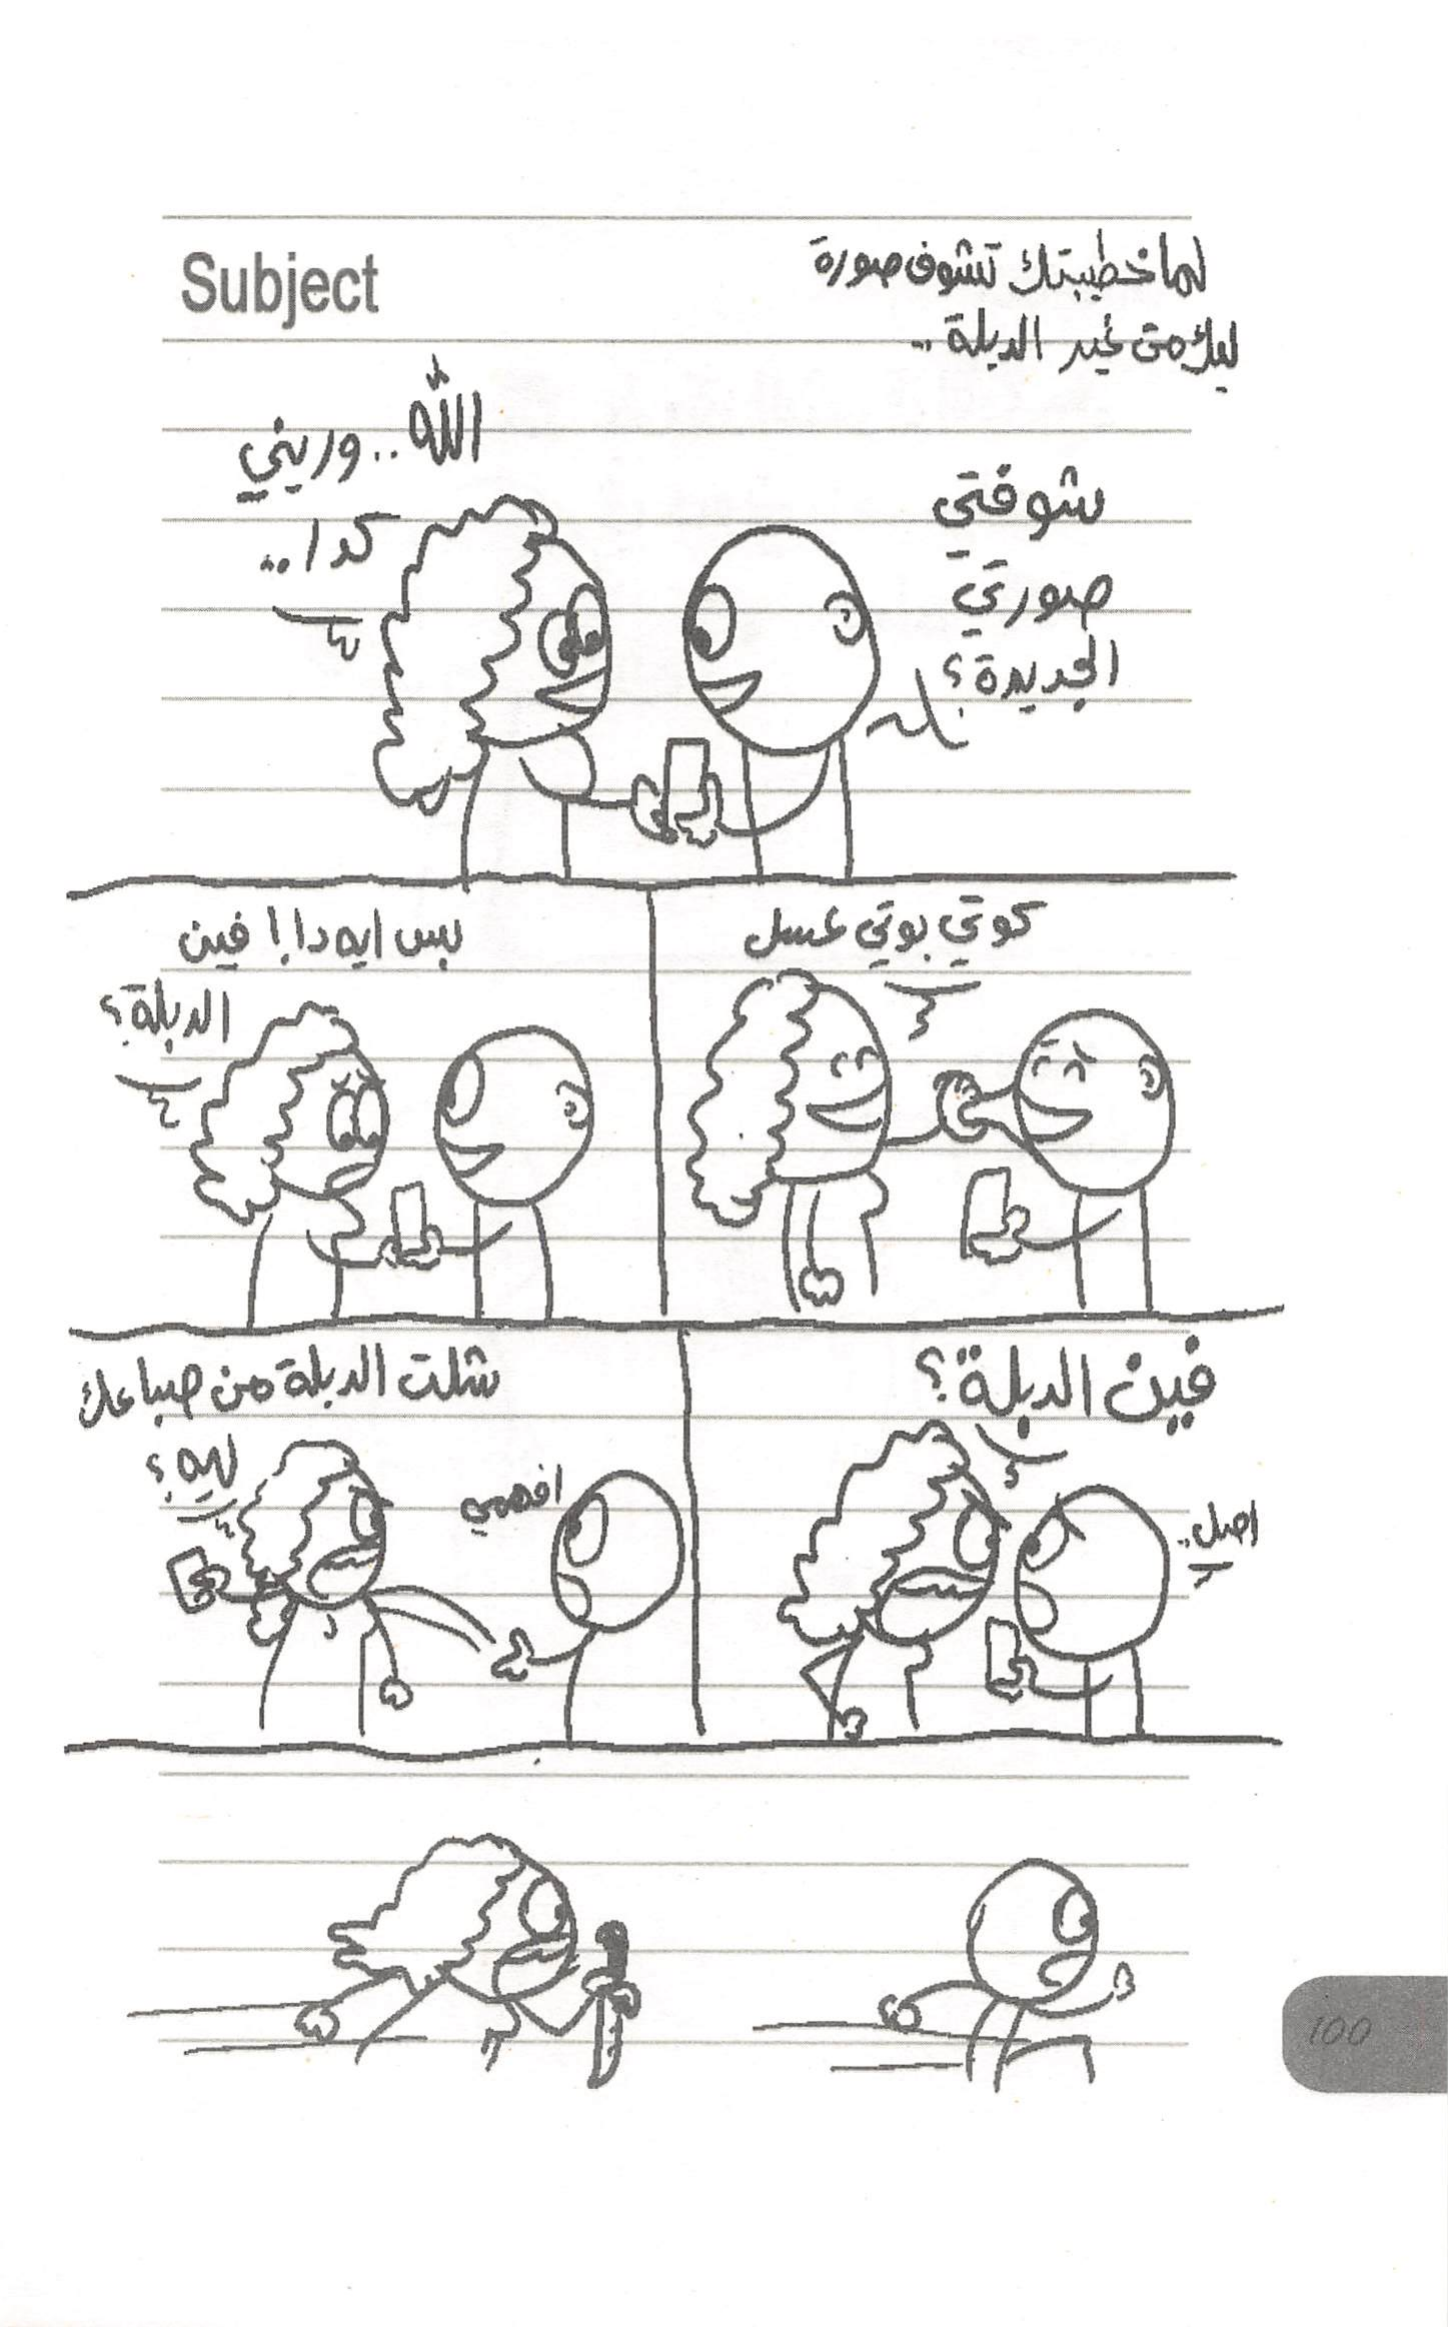 Subject
لما خطيبتك تشوف صورة
ليك من غير الدبلة ..
شوفتي
صورتي
الجديدة؟
الله .. وريني
كدا ..
كوتي بوتي عسل
بس ايه دا! فين
الدبلة؟
فين الدبلة؟
اصل ..
شلت الدبلة من صباعك
ليه؟
افهمي
100